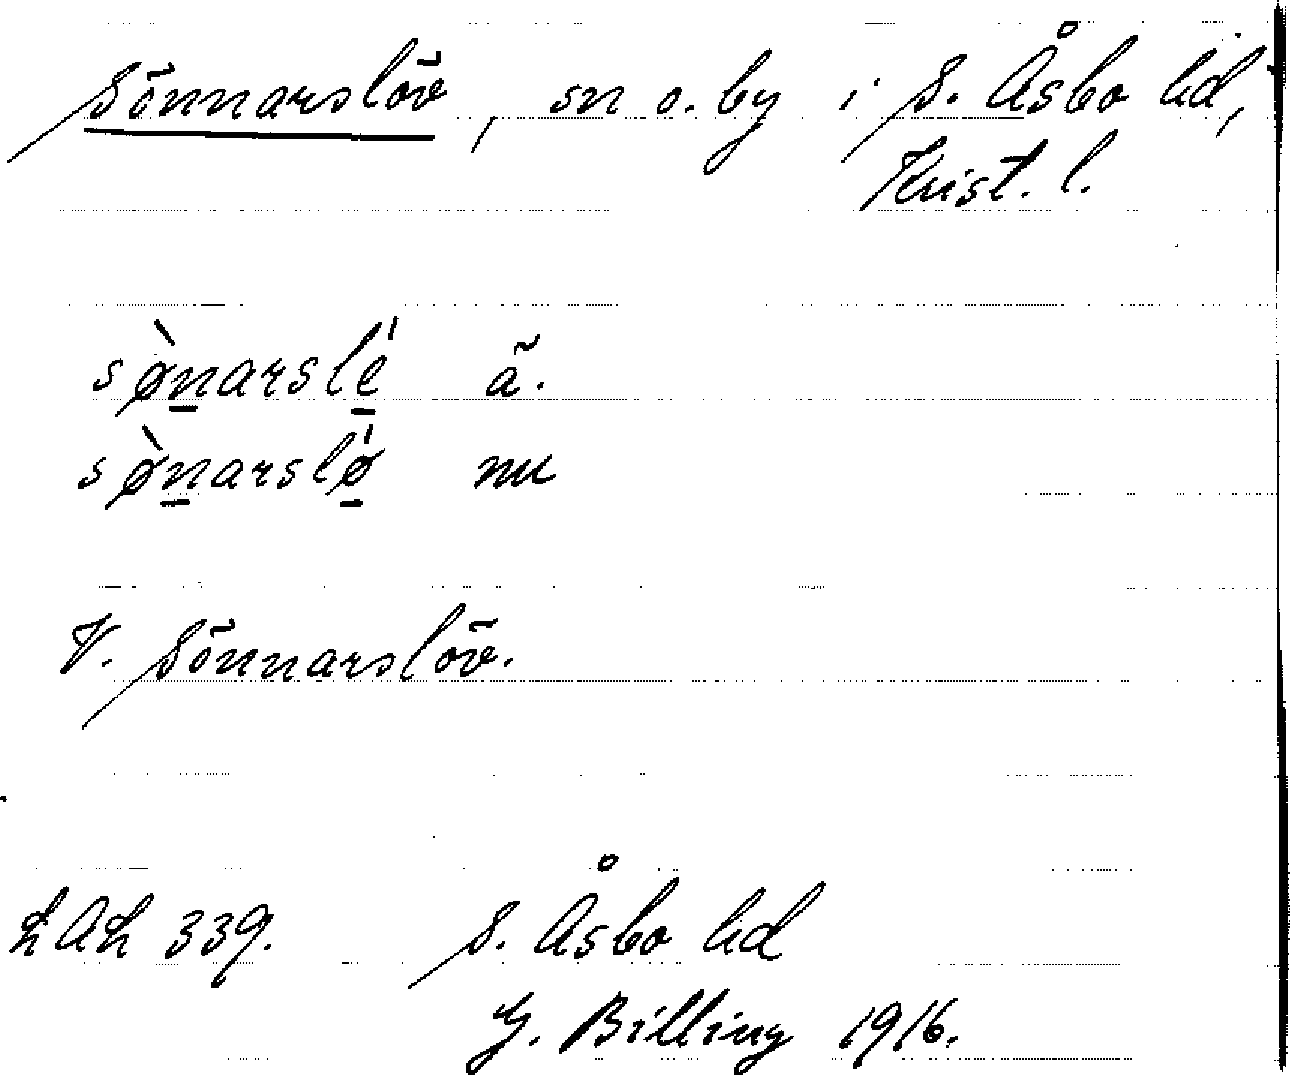 Sönnarslöv, sn o. by i S. Åsbo hd,
Krist. l.
sø̀narslé ä.
sø̀narslǿ nu
V. Sönnarslöv.
LAL 339. S. Åsbo hd
G. Billing 1916.